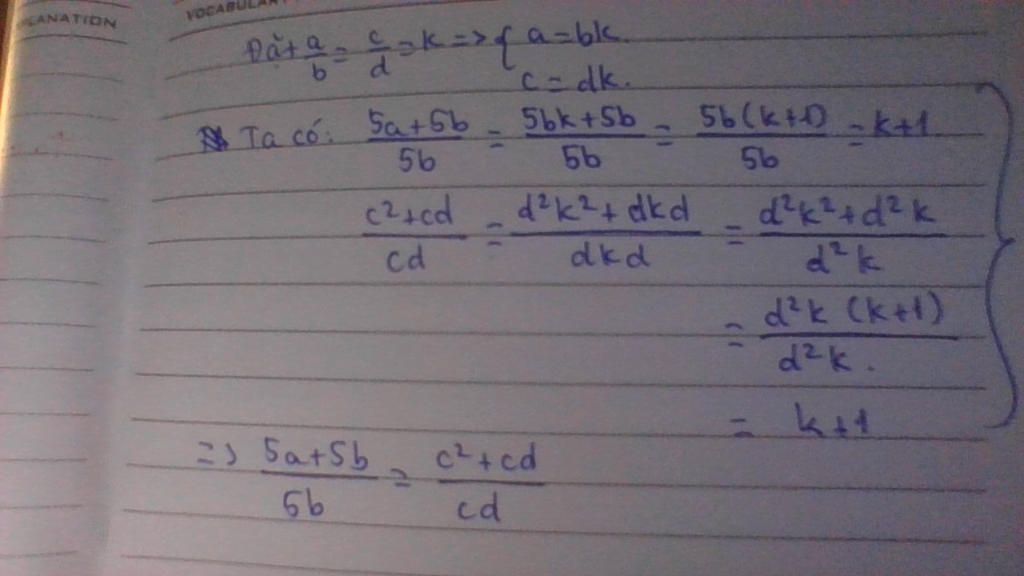 LANATION
VOCABULAR
Đặt a/b = c/d = k => { a = bk.
c = dk.
Ta có: 5a+5b/5b = 5bk+5b/5b = 5b(k+1)/5b = k+1
c²+cd/cd = d²k²+dkd/dkd = d²k²+d²k/d²k
= d²k (k+1)/d²k.
= k+1
=> 5a+5b/5b = c²+cd/cd